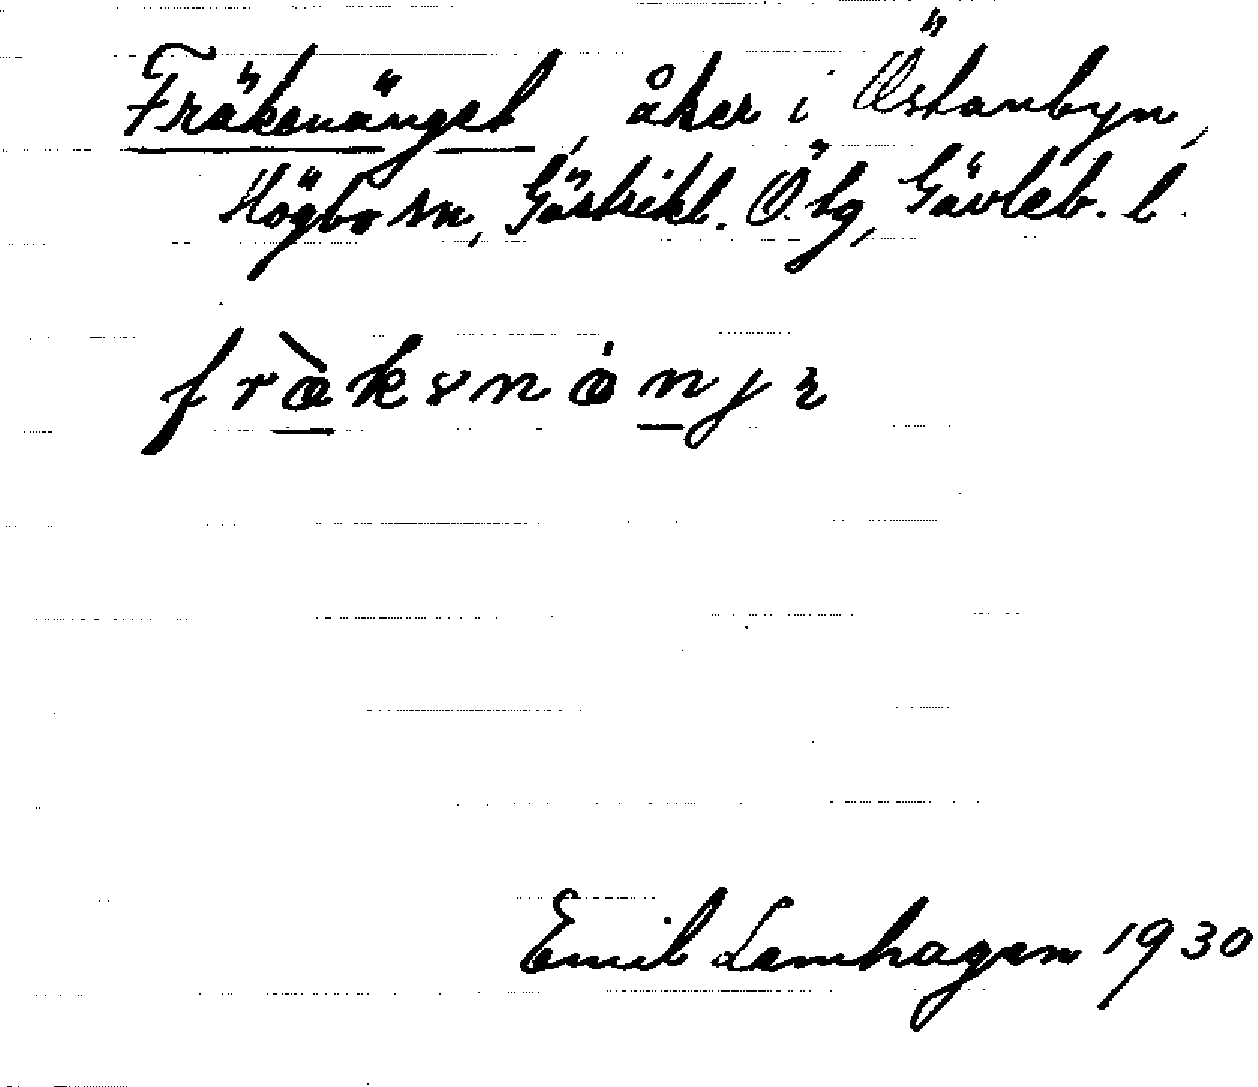 Fräkenänget, åker i Östanbyn,
Högbo sn, Gästrikl. Ö. tg, Gävleb. l.
fràkɤnȧnȷɿ
Emil Lamhagen 1930